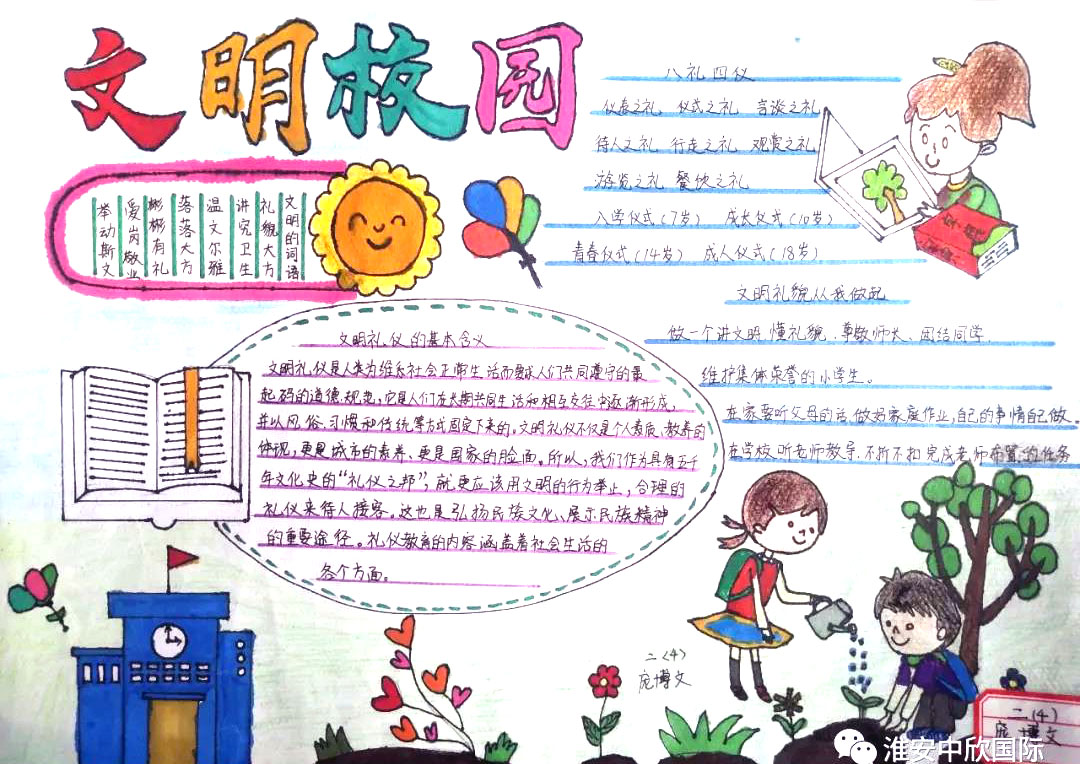 文明校园
文明的词语
礼貌大方
讲究卫生
温文尔雅
落落大方
彬彬有礼
爱岗敬业
举动斯文
八礼四仪
仪表之礼 仪式之礼 言谈之礼
待人之礼 行走之礼 观赏之礼
游览之礼 餐饮之礼
入学仪式(7岁) 成长仪式(10岁)
青春仪式(14岁) 成人仪式(18岁)
文明礼貌从我做起
做一个讲文明、懂礼貌、尊敬师长、团结同学、
维护集体荣誉的小学生。
在家要听父母的话,做好家庭作业,自己的事情自己做。
在学校,听老师教导,不折不扣完成老师布置的任务
文明礼仪的基本含义
文明礼仪是人类为维系社会正常生活而要求人们共同遵守的最
起码的道德规范,它是人们在长期共同生活和相互交往中逐渐形成,
并以风俗、习惯和传统等方式固定下来的。文明礼仪不仅是个人素质、教养的
体现,更是城市的素养、更是国家的脸面。所以,我们作为具有五千
年文化史的“礼仪之邦”,就更应该用文明的行为举止,合理的
礼仪来待人接客。这也是弘扬民族文化、展示民族精神
的重要途径。礼仪教育的内容涵盖着社会生活的
各个方面。
二(4)
庞博文
二(4)
庞博文
淮安中欣国际